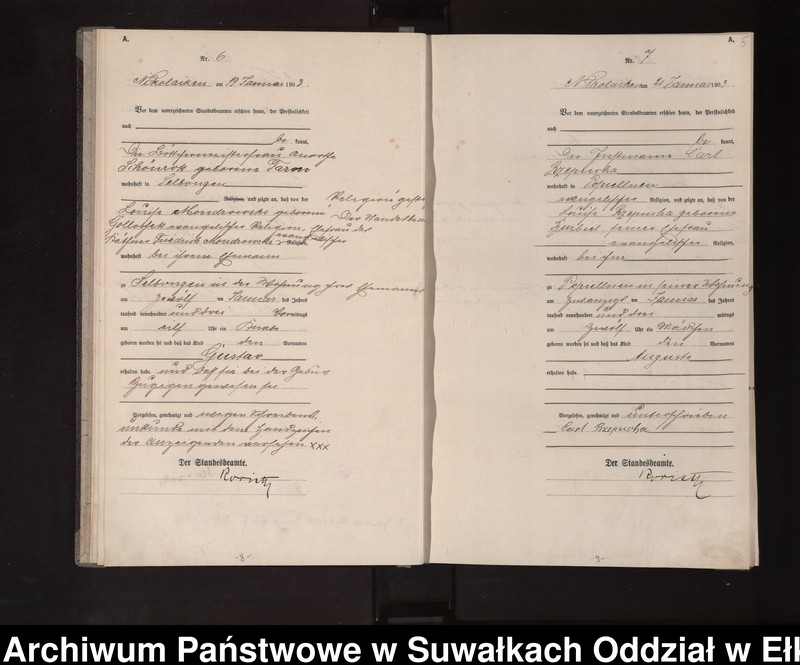 A.
Nr. 6
Nikolaiken am 19 Januar 1903.
Vor dem unterzeichneten Standesbeamten erschien heute, der Persönlichkeit
nach
be kannt,
Die Böttchermeisterfrau
Schönrock geborene
wohnhaft in Selbongen
Religion, und zeigte an, daß von der
Louise Mondrowski geborene
Gollobek evangelischer Religion, Ehefrau des
Friedrich Mondrowski
wohnhaft bei ihrem Ehemann
zu Selbongen in der Wohnung ihres Ehemannes
am zwölf ten Januar des Jahres
tausend neunhundert und drei Vormittags
um elf Uhr ein Knabe
geboren worden sei und daß das Kind den Vornamen
Gustav
erhalten habe und daß sie bei der Geburt
zugegen gewesen sei
Vorgelesen, genehmigt und wegen Schreibens
unkunde mit dem Handzeichen
der Anzeigenden versehen xxx
Der Standesbeamte.
-8-
A. 5
Nr. 7
Nikolaiken am 21 Januar 1903.
Vor dem unterzeichneten Standesbeamten erschien heute, der Persönlichkeit
nach
be kannt,
Der Instmann Carl
Rzepucha
wohnhaft in
evangelischer Religion, und zeigte an, daß von der
Louise Rzepucha geborene
seiner Ehefrau
evangelischer Religion,
wohnhaft bei ihm
zu in seiner Wohnung
am zwanzigsten Januar des Jahres
tausend neunhundert und drei mittags
um zwölf Uhr ein Mädchen
geboren worden sei und daß das Kind den Vornamen
Auguste
erhalten habe.
Vorgelesen, genehmigt und unterschrieben
Carl Rzepucha
Der Standesbeamte.
-9-
Archiwum Państwowe w Suwałkach Oddział w Ełk